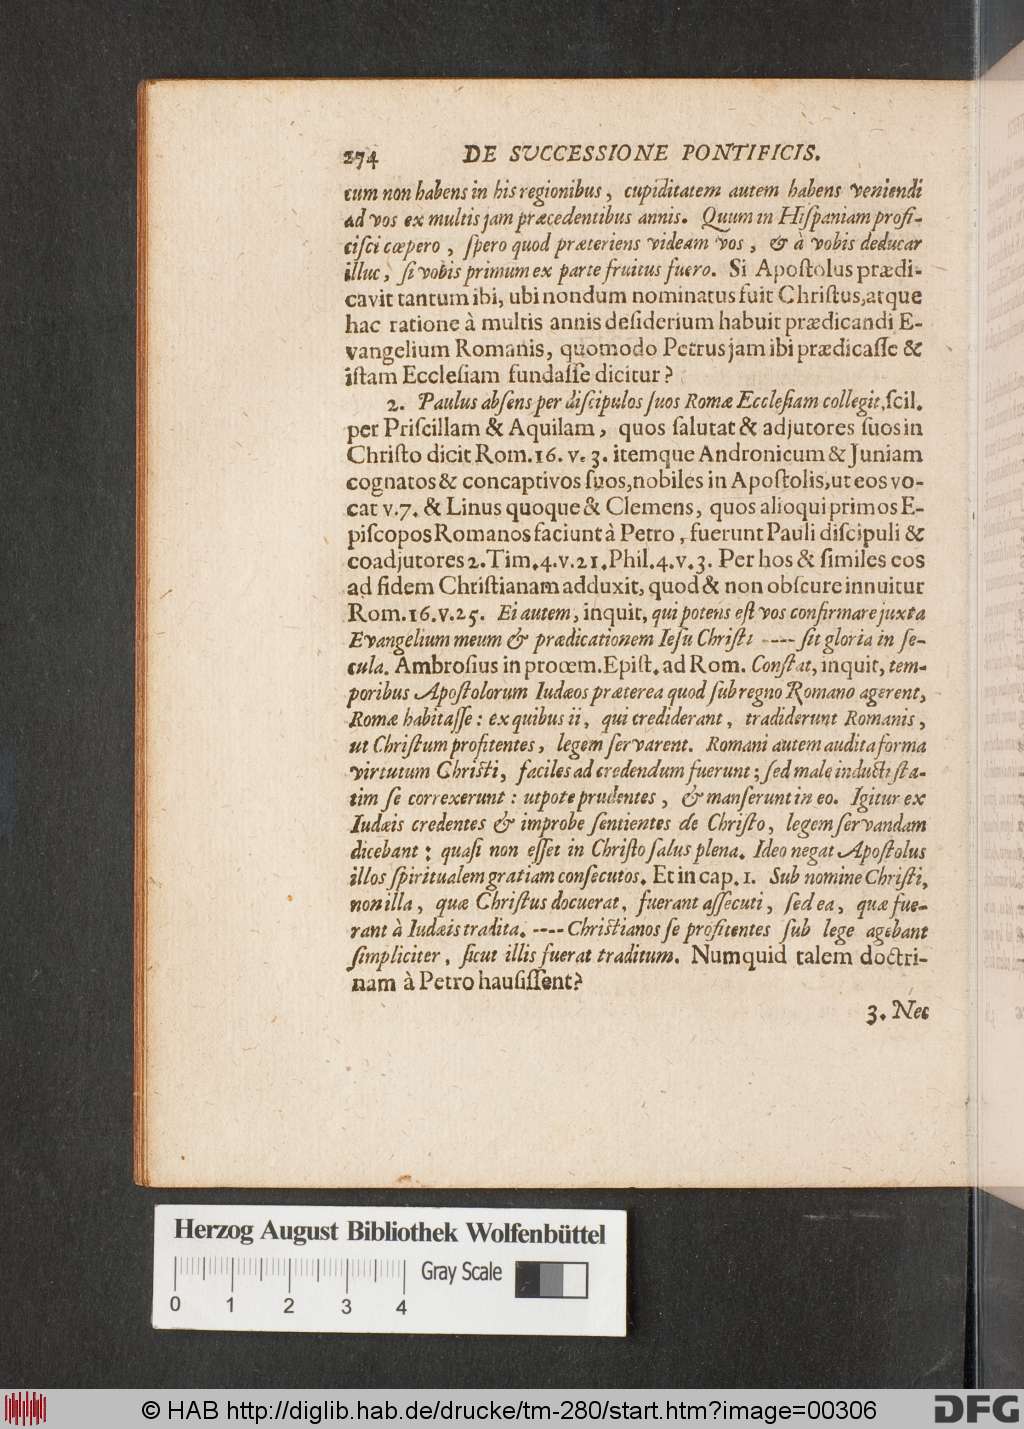 274 DE SVCCESSIONE PONTIFICIS.
cum non habens in his regionibus, cupiditatem autem habens veniendi
ad vos ex multis jam præcedentibus annis. Quum in Hiſpaniam profi-
ciſci cœpero, ſpero quod præteriens videam vos, & à vobis deducar
illuc, ſi vobis primum ex parte fruitus fuero. Si Apoſtolus prædi-
cavit tantum ibi, ubi nondum nominatus fuit Chriſtus, atque
hac ratione à multis annis deſiderium habuit prædicandi E-
vangelium Romanis, quomodo Petrus jam ibi prædicaſſe &
iſtam Eccleſiam fundaſſe dicitur?
2. Paulus abſens per diſcipulos ſuos Romæ Eccleſiam collegit, ſcil.
per Priſcillam & Aquilam, quos ſalutat & adjutores ſuos in
Chriſto dicit Rom. 16. v. 3. itemque Andronicum & Juniam
cognatos & concaptivos ſuos, nobiles in Apoſtolis, ut eos vo-
cat v. 7. & Linus quoque & Clemens, quos alioqui primos E-
piſcopos Romanos faciunt à Petro, fuerunt Pauli diſcipuli &
coadjutores 2. Tim. 4. v. 21. Phil. 4. v. 3. Per hos & ſimiles eos
ad fidem Chriſtianam adduxit, quod & non obſcure innuitur
Rom. 16. v. 25. Ei autem, inquit, qui potens eſt vos confirmare juxta
Evangelium meum & prædicationem Ieſu Chriſti ---- ſit gloria in ſe-
cula. Ambroſius in proœm. Epiſt. ad Rom. Conſtat, inquit, tem-
poribus Apoſtolorum Iudæos præterea quod ſub regno Romano agerent,
Romæ habitaſſe: ex quibus ii, qui crediderant, tradiderunt Romanis,
ut Chriſtum profitentes, legem ſervarent. Romani autem audita forma
virtutum Chriſti, faciles ad credendum fuerunt; ſed male inducti ſta-
tim ſe correxerunt: utpote prudentes, & manſerunt in eo. Igitur ex
Iudæis credentes & improbe ſentientes de Chriſto, legem ſervandam
dicebant: quaſi non eſſet in Chriſto ſalus plena. Ideo negat Apoſtolus
illos ſpiritualem gratiam conſecutos. Et in cap. 1. Sub nomine Chriſti,
non illa, quæ Chriſtus docuerat, fuerant aſſecuti, ſed ea, quæ fue-
rant à Iudæis tradita. ---- Chriſtianos ſe profitentes ſub lege agebant
ſimpliciter, ſicut illis fuerat traditum. Numquid talem doctri-
nam à Petro hauſiſſent?
3. Nec
Herzog August Bibliothek Wolfenbüttel
Gray Scale
0 1 2 3 4
© HAB http://diglib.hab.de/drucke/tm-280/start.htm?image=00306
DFG